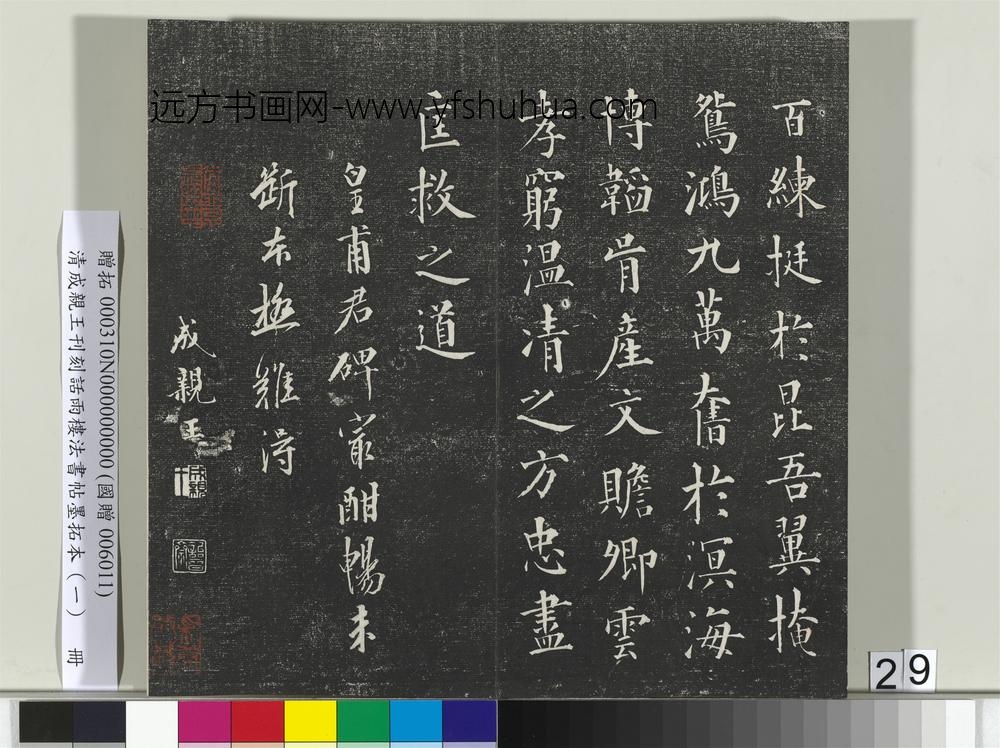 百練挺於昆吾翼掩
鴛鴻九萬奮於溟海
博韜胄産文贍卿雲
孝窮温清之方忠盡
匡救之道
皇甫君碑寂酣暢未
斷本極難得
成親王
远方书画网-www.yfshuhua.com
贈拓 000310N000000000 (國贈 006011)
清成親王刊刻話雨樓法書帖墨拓本(一) 冊
29